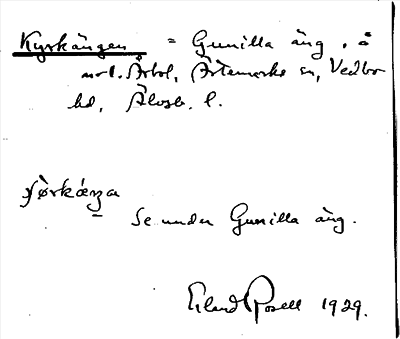 Kyrkängen = Gunilla äng, å
Årbol, Ärtemarks sn, Vedbo
hd, Älvsb. l.
Se under Gunilla äng.
Erland Rosell 1929.